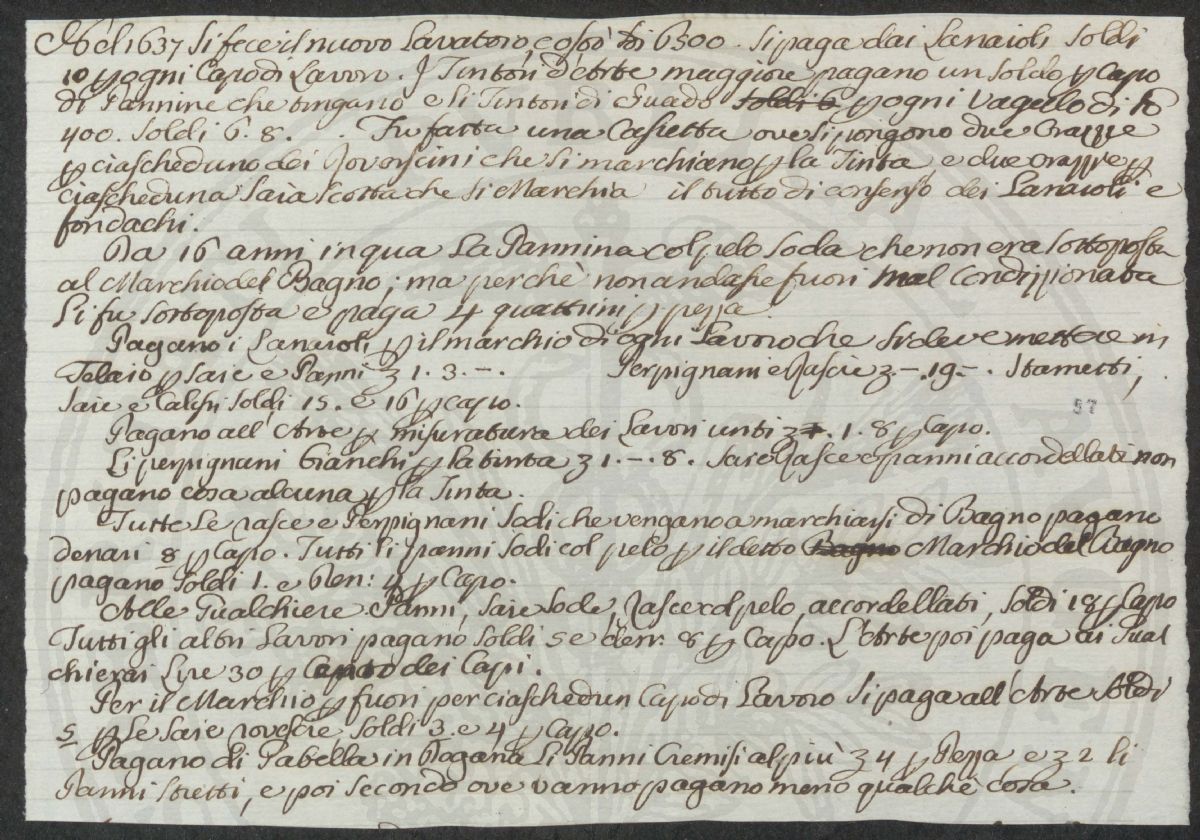 Nel 1637 si fece il nuovo Lavatoro, costò di 6500. si paga dai Lanaioli Soldi
10 p ogni Capo di Lavoro. I Tintori d'Arte maggiore pagano un Soldo p Capo
di Pannine che tingano e li Tintori di Guado soldi 6 p ogni Vagello di lb
400. Soldi 6. 8. . Fu fatta una Casietta ove si pongono due crazze
p ciascheduno dei Roverscini che si marchiano p la Tinta e due crazze p
ciascheduna Saia scotta che si Marchia il tutto di consenso dei Lanaioli e
fondachi.
Da 16 anni in qua La Pannina col pelo soda che non era sottoposta
al Marchio del Bagno; ma perchè non andasse fuori mal Condizzionata
Si fu sottoposta e paga 4 quattrini p pezza
Pagano i Lanaioli p il marchio di ogni Lavoro che si deve mettere in
Telaio p Saie e Panni ʒ 1. 3. –. Perpignani e Rascie ʒ –. 19 –. Stametti,
Saie e Calisi Soldi 15. e 16 p capo.
Pagano all'Arte p misuratura dei Lavori unti ʒ –. 1. 8 p Capo.
Li perpignani bianchi p la tinta ʒ 1. –. 8. Saie Rasce e panni accordellati non
pagano cosa alcuna p la Tinta.
Tutte Le rasce e Perpignani Sodi che vengano a marchiarsi di Bagno pagano
denari 8 p Capo. Tutti li panni sodi col pelo p il detto Bagno Marchio del Bagno
pagano Soldi 1. e Den: 4 p Capo.
Alle Gualchiere Panni, Saie sode, Rasce col pelo, accordellati, Soldi 18 p Capo
Tutti gli altri Lavori pagano Soldi 5 e den: 8 p Capo. L'Arte poi paga ai Gual
chierai Lire 30 p Cento dei Capi.
Per il Marchio p fuori per ciaschedun Capo di Lavoro si paga all'Arte Soldi
5 p Le Saie rovescie Soldi 3. e 4 p Capo.
Pagano di Gabella in Dogana Li Panni Cremisi al più ʒ 4 p Pezza e ʒ 2 li
Panni Stretti, e poi secondo ove vanno pagano meno qualchè cosa.
57